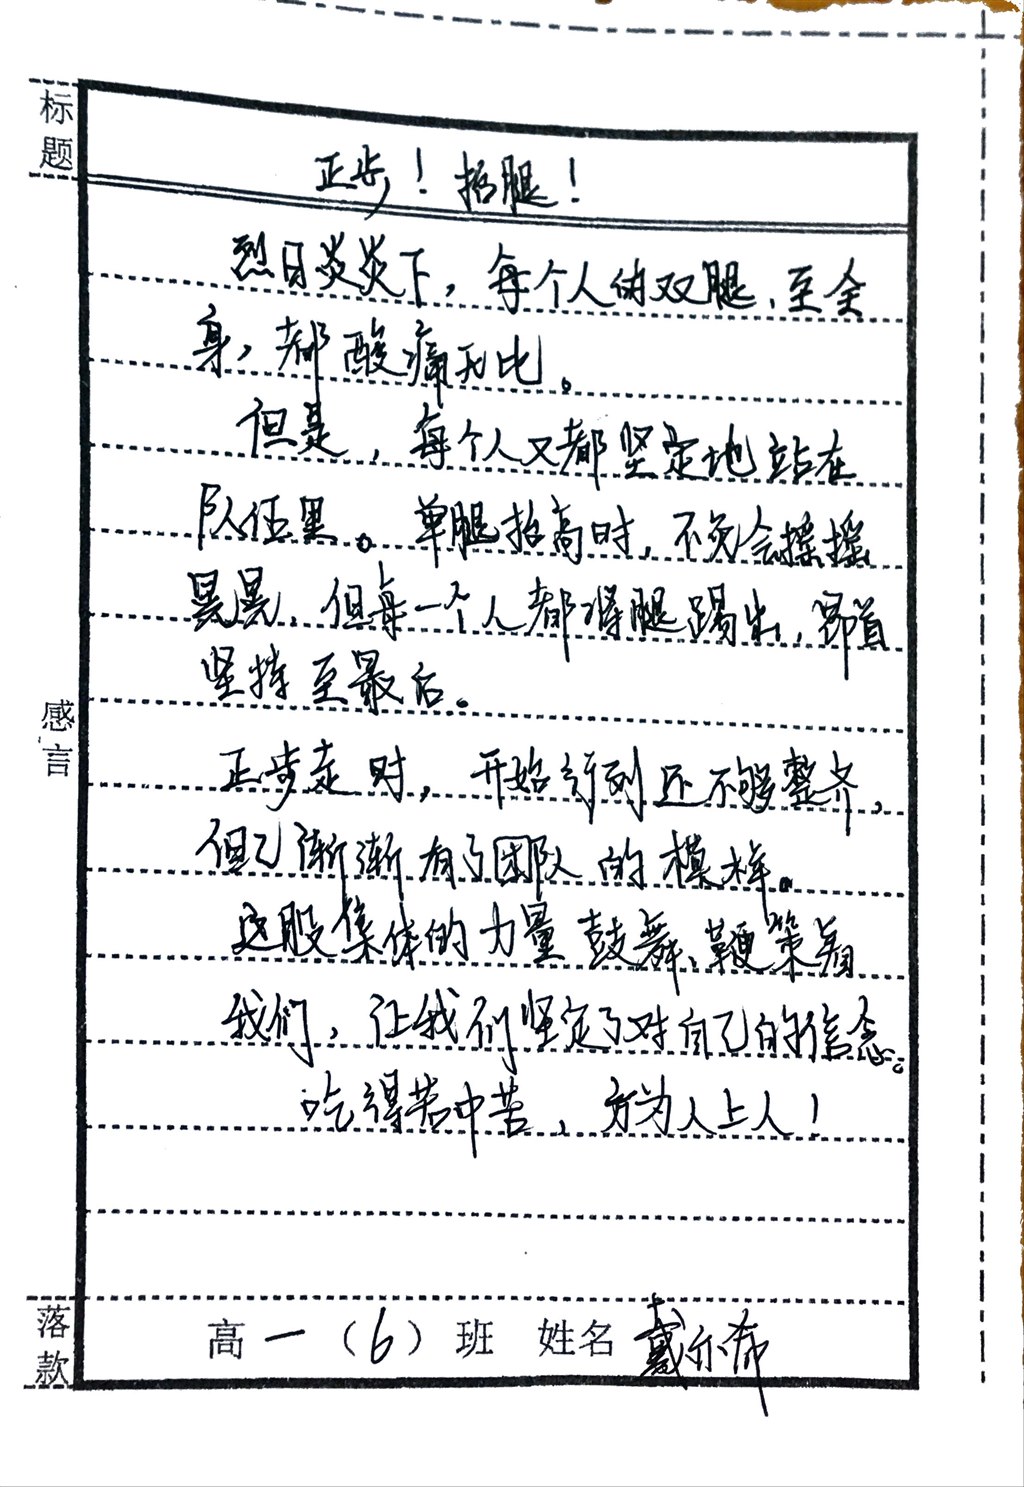 标题
正步！抬腿！
烈日炎炎下，每个人的双腿、至全
身，都酸痛无比。
但是，每个人又都坚定地站在
队伍里。单腿抬高时，不免会摇摇
晃晃，但每一个人都将腿踢出，
坚持至最后。
感言
正步走时，开始行列还不够整齐，
但已渐渐有了团队的模样。
这股集体的力量鼓舞、鞭策着
我们，让我们坚定了对自己的信念。
吃得苦中苦，方为人上人！
落款
高一（6）班 姓名 戴尔希